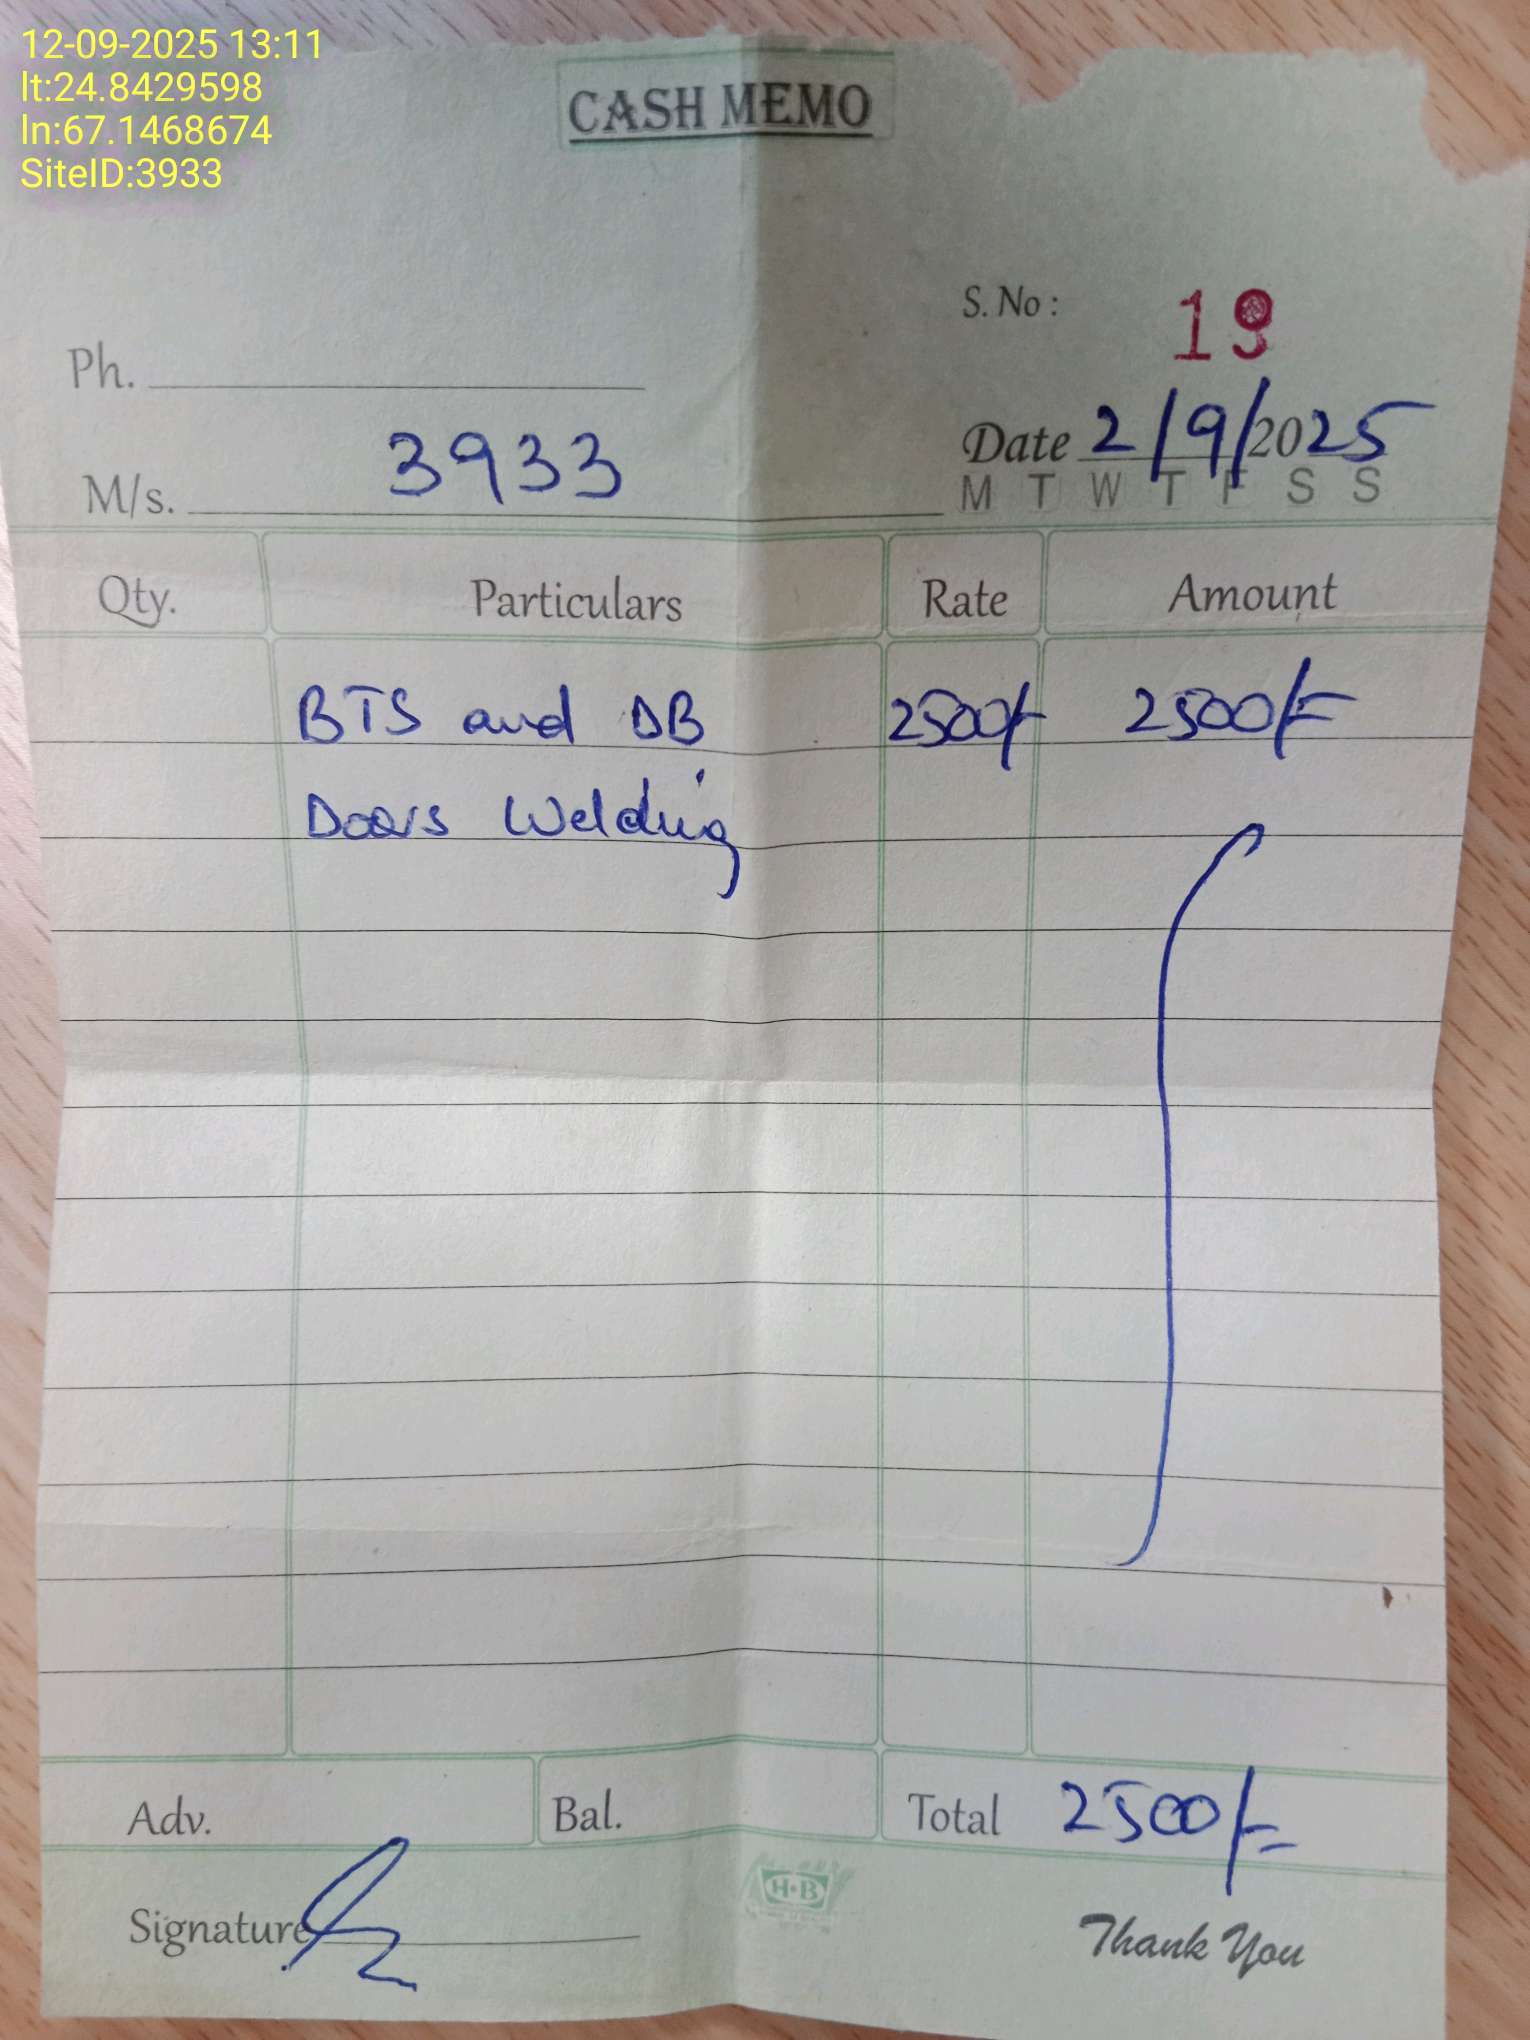 12-09-2025 13:11
lt:24.8429598
ln:67.1468674
SiteID:3933
CASH MEMO
S. No : 19
Ph.
Date 2/9/2025
M/s. 3933
M T W T F S S
Qty. Particulars Rate Amount
BTS and DB 2500/- 2500/=
Doors Welding
Adv. Bal. Total 2500/=
H·B
Signature
Thank You